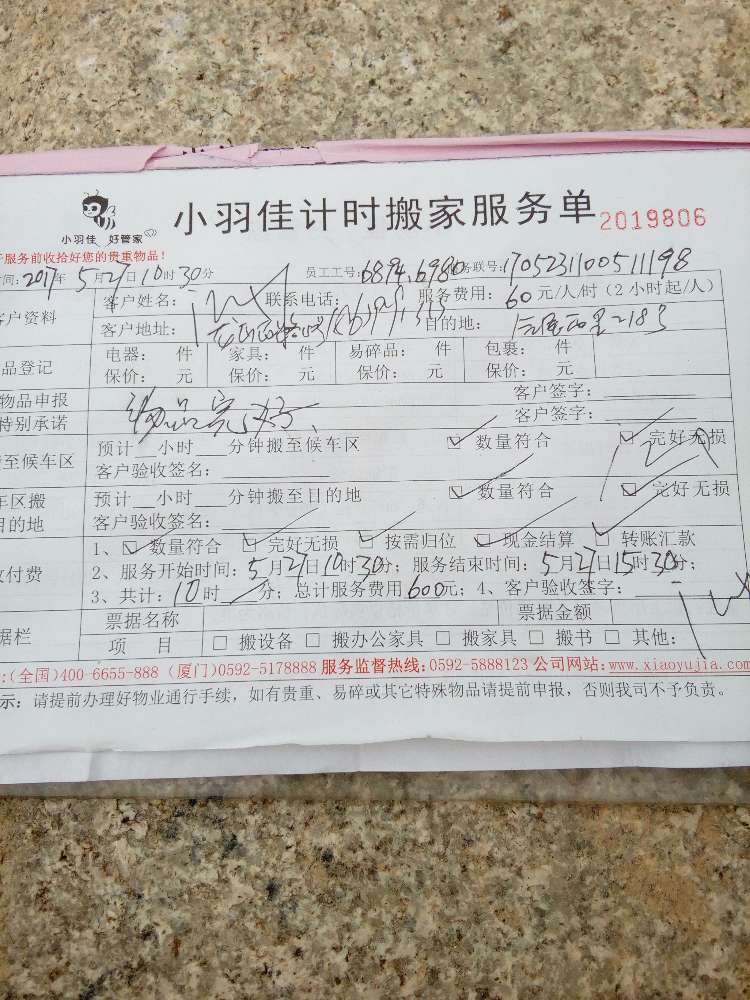 小羽佳 好管家
小羽佳计时搬家服务单 2019806
服务前收拾好您的贵重物品！
间：2017年5月27日10时30分 员工工号：6894.6980 务联号：170523110051198
户资料 客户姓名： 联系电话： 服务费用：60元/人/时（2小时起/人）
客户地址： 目的地：
品登记 电器： 件 家具： 件 易碎品： 件 包裹： 件
保价： 元 保价： 元 保价： 元 保价： 元
物品申报 物品完好 客户签字：
特别承诺 客户签字：
至候车区 预计 小时 分钟搬至候车区 ☑ 数量符合 ☑ 完好无损
客户验收签名：
车区搬 预计 小时 分钟搬至目的地 ☑ 数量符合 ☑ 完好无损
目的地 客户验收签名：
付费 1、☑ 数量符合 ☑ 完好无损 ☑ 按需归位 ☑ 现金结算 ☑ 转账汇款
2、服务开始时间：5月27日10时30分；服务结束时间：5月27日15时30分；
3、共计：10时 分；总计服务费用600元；4、客户验收签字：
据栏 票据名称 票据金额
项 目 □ 搬设备 □ 搬办公家具 □ 搬家具 □ 搬书 □ 其他：
：(全国)400-6655-888 (厦门)0592-5178888 服务监督热线：0592-5888123 公司网站：www.xiaoyujia.com
示：请提前办理好物业通行手续，如有贵重、易碎或其它特殊物品请提前申报，否则我司不予负责。